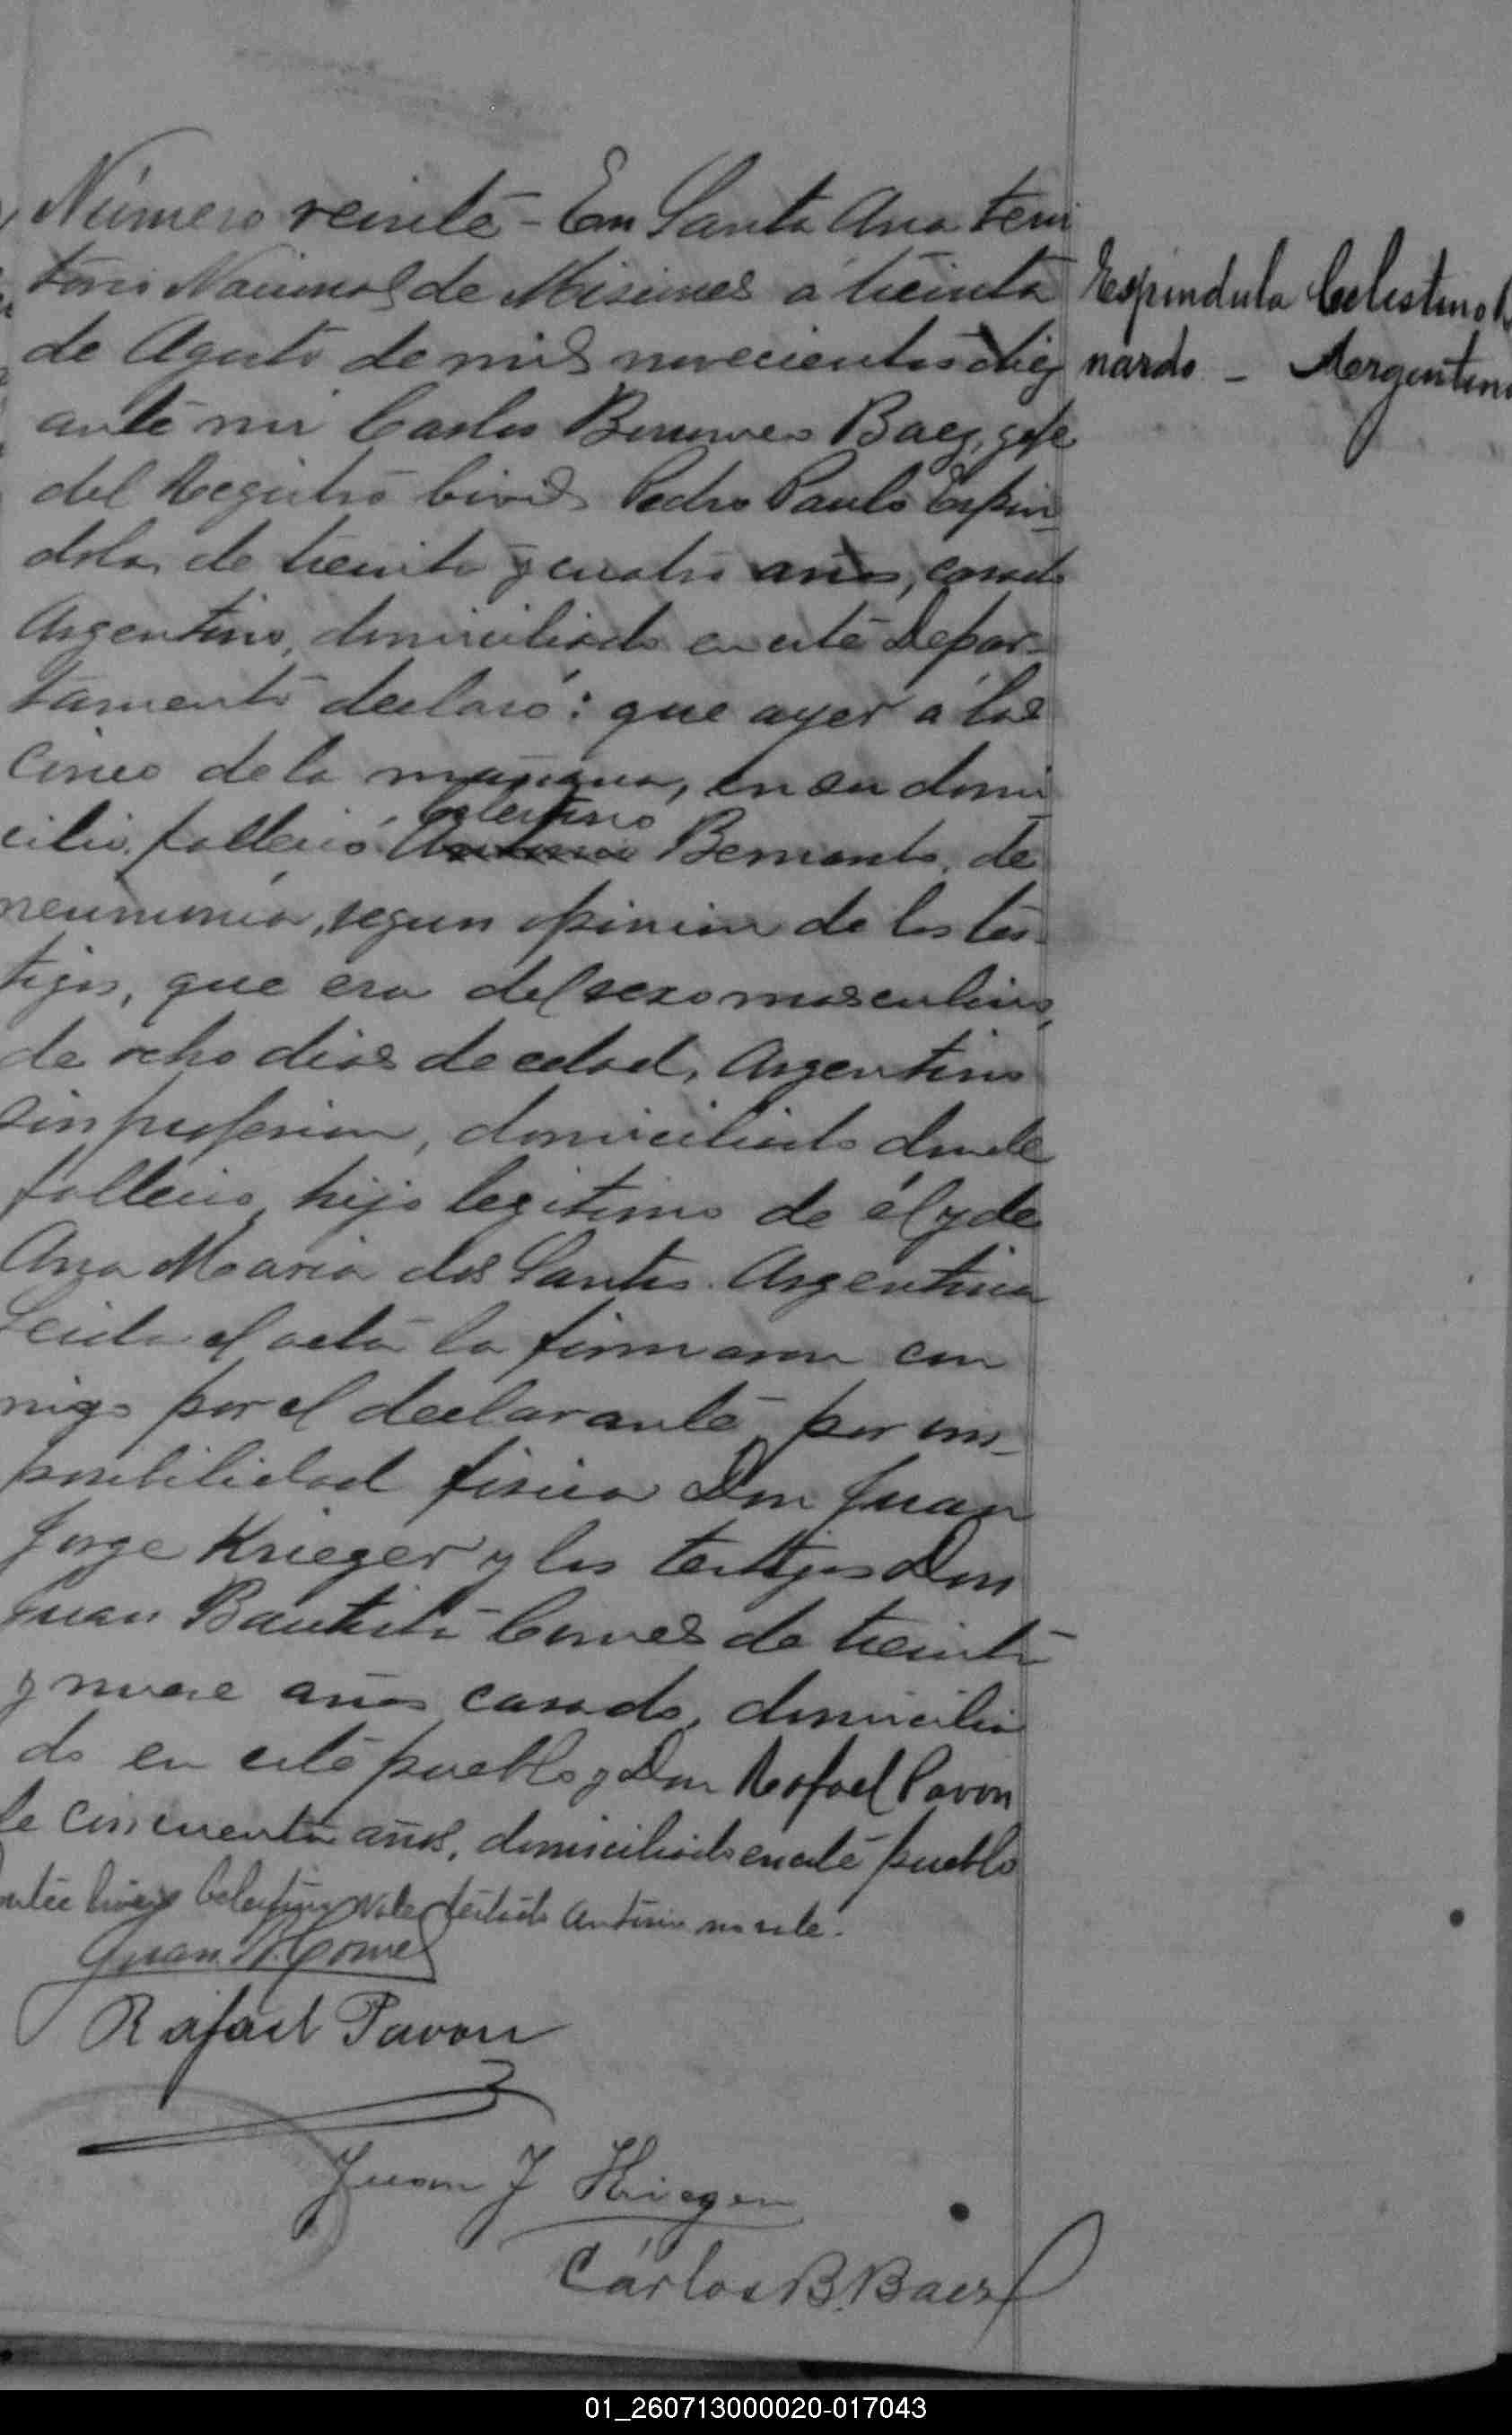 Número veinte - En Santa Ana terri
torio Nacional de Misiones a treinta
de Agosto de mil novecientos diez
ante mi Carlos Baez, gefe
del Registro Civil Pedro Paulo Espin-
dola, de treinta y cuatro años, casado
Argentino, domiciliado en este Depar-
tamento declaró: que ayer a las
cinco de la mañana, en su domi
Celestino
cilio, fallecio Antonio Bernardo, de
neumonia, segun opinion de los tes-
tigos, que era del sexo masculino,
de ocho dias de edad, Argentino
sin profesion, domiciliado donde
fallecio, hijo legitimo de él y de
Ana Maria dos Santos. Argentina
Leida el acta la firmaron con
migo por el declarante por im-
posibilidad fisica Don Juan
Jorge Krieger y los testigos Don
Juan Bautista Gomes de treinta
y nueve años casado, domicilia
do en este pueblo y Don Rafael Pavon
de cincuenta años, domiciliado en este pueblo
Celestino Vale testado Antonio no vale.
Juan B Gomes
Rafael Pavon
Juan J Krieger
Cárlos B. Baez
Espindula Celestino
nardo - Argentino
01_260713000020-017043